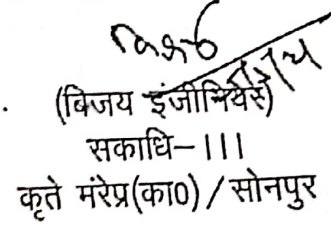 (विजय इंजीनियर्स)
सकाधि-III
कृते मंरेप्र(का०) / सोनपुर